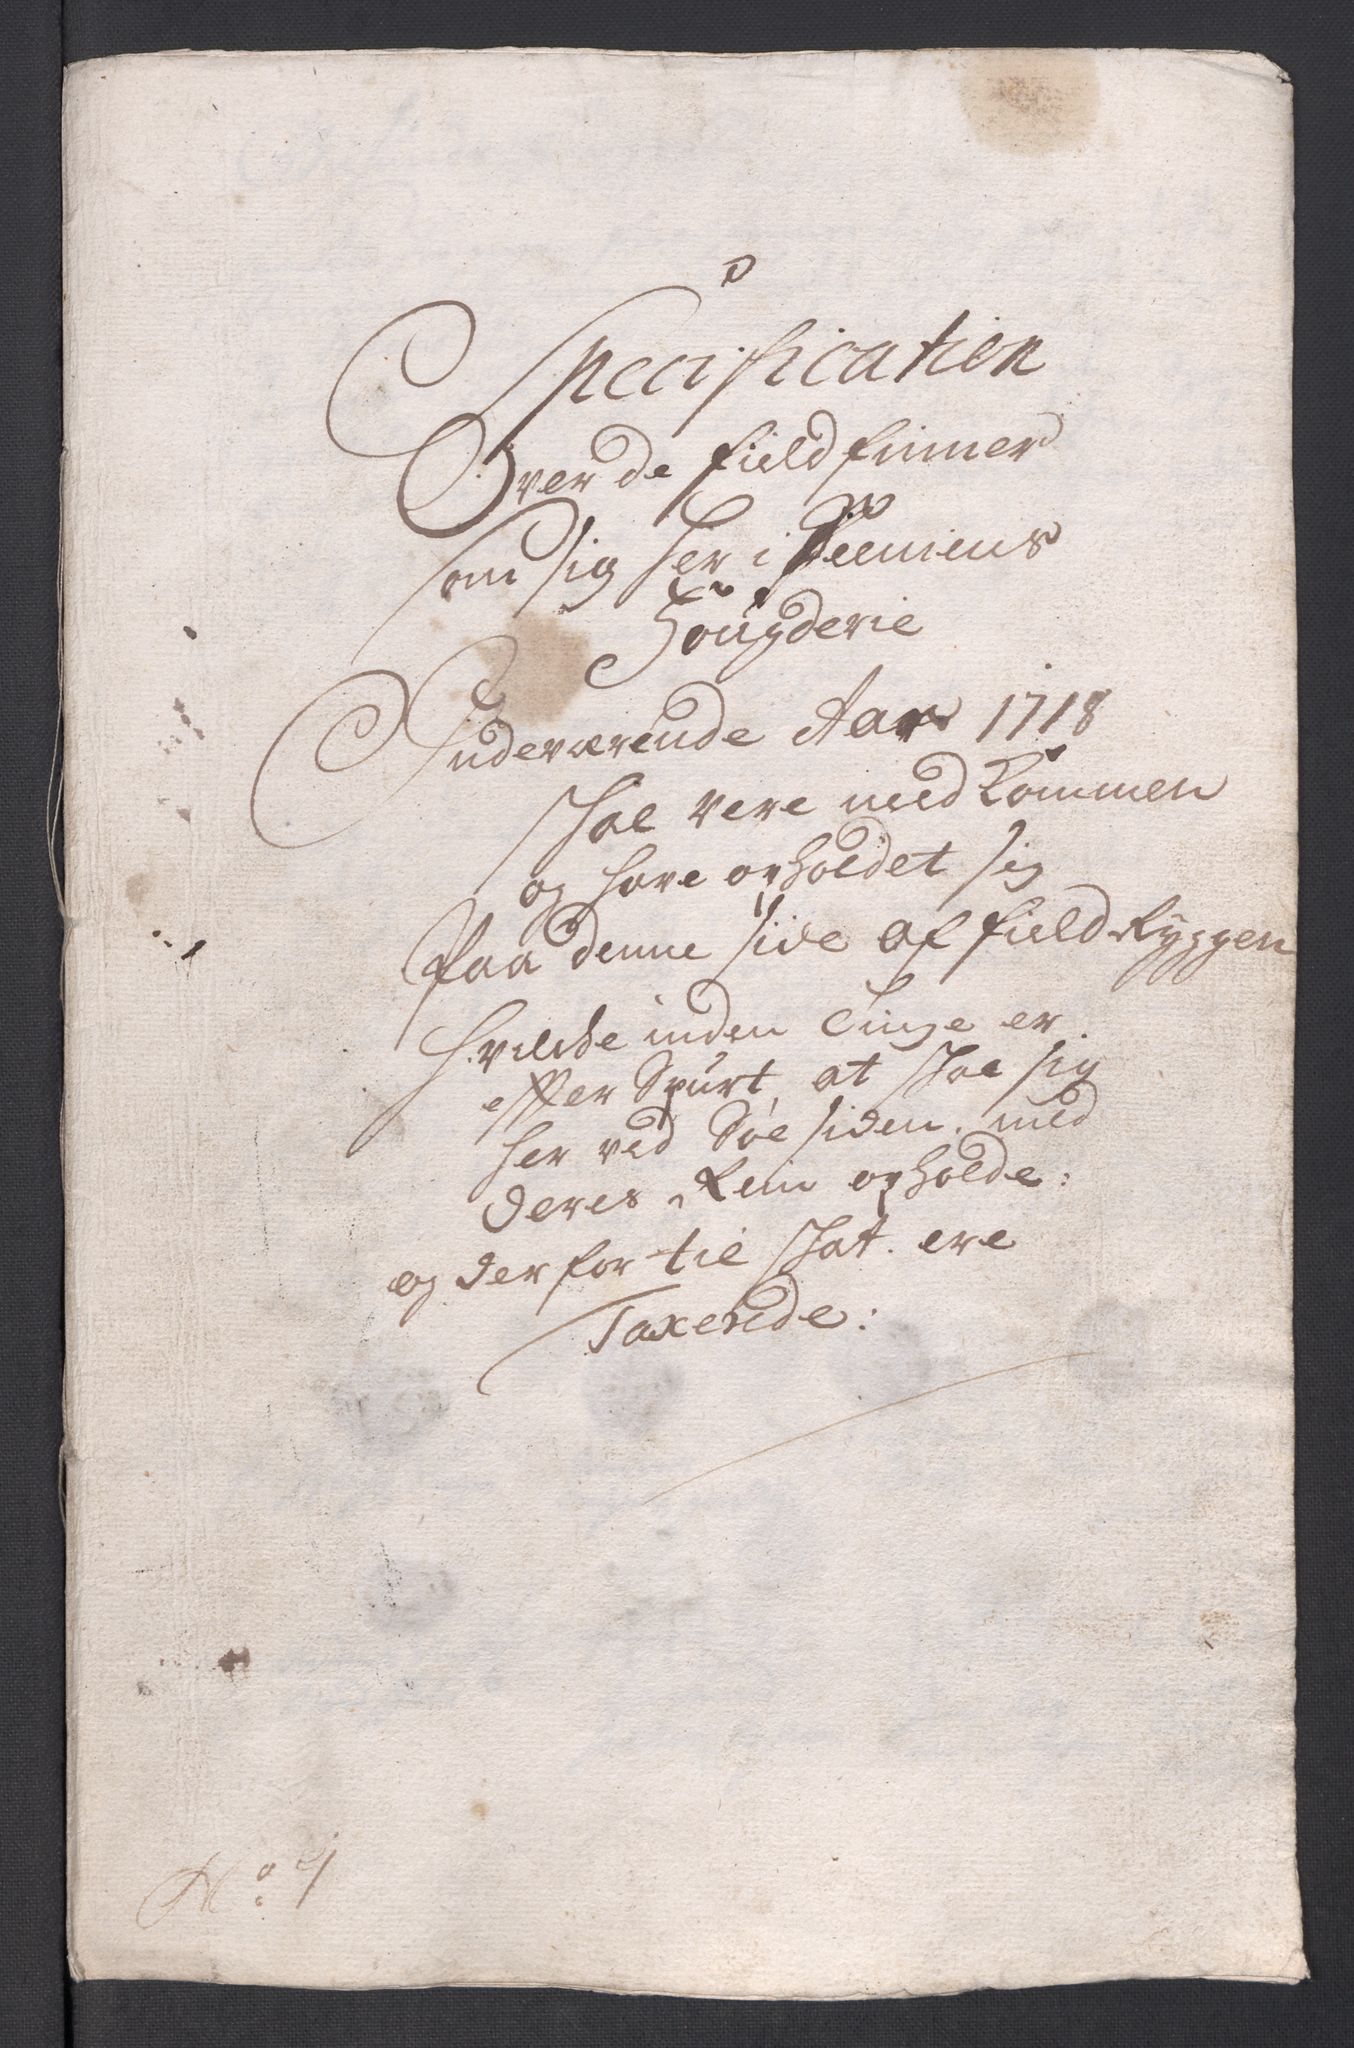 Specification
Over de field finner
som sig her i Senniens
Fougderie
Indeværende Aar 1718
skal vere nedkommen
og have opholdet sig
Paa denne side af field Ryggen
hvilcke inden Tinge er
effter Spurt, at skal sig
her ved Søe siden. med
deres Rein opholde:
og der for til skat. ere
Taxerede:
No: 4